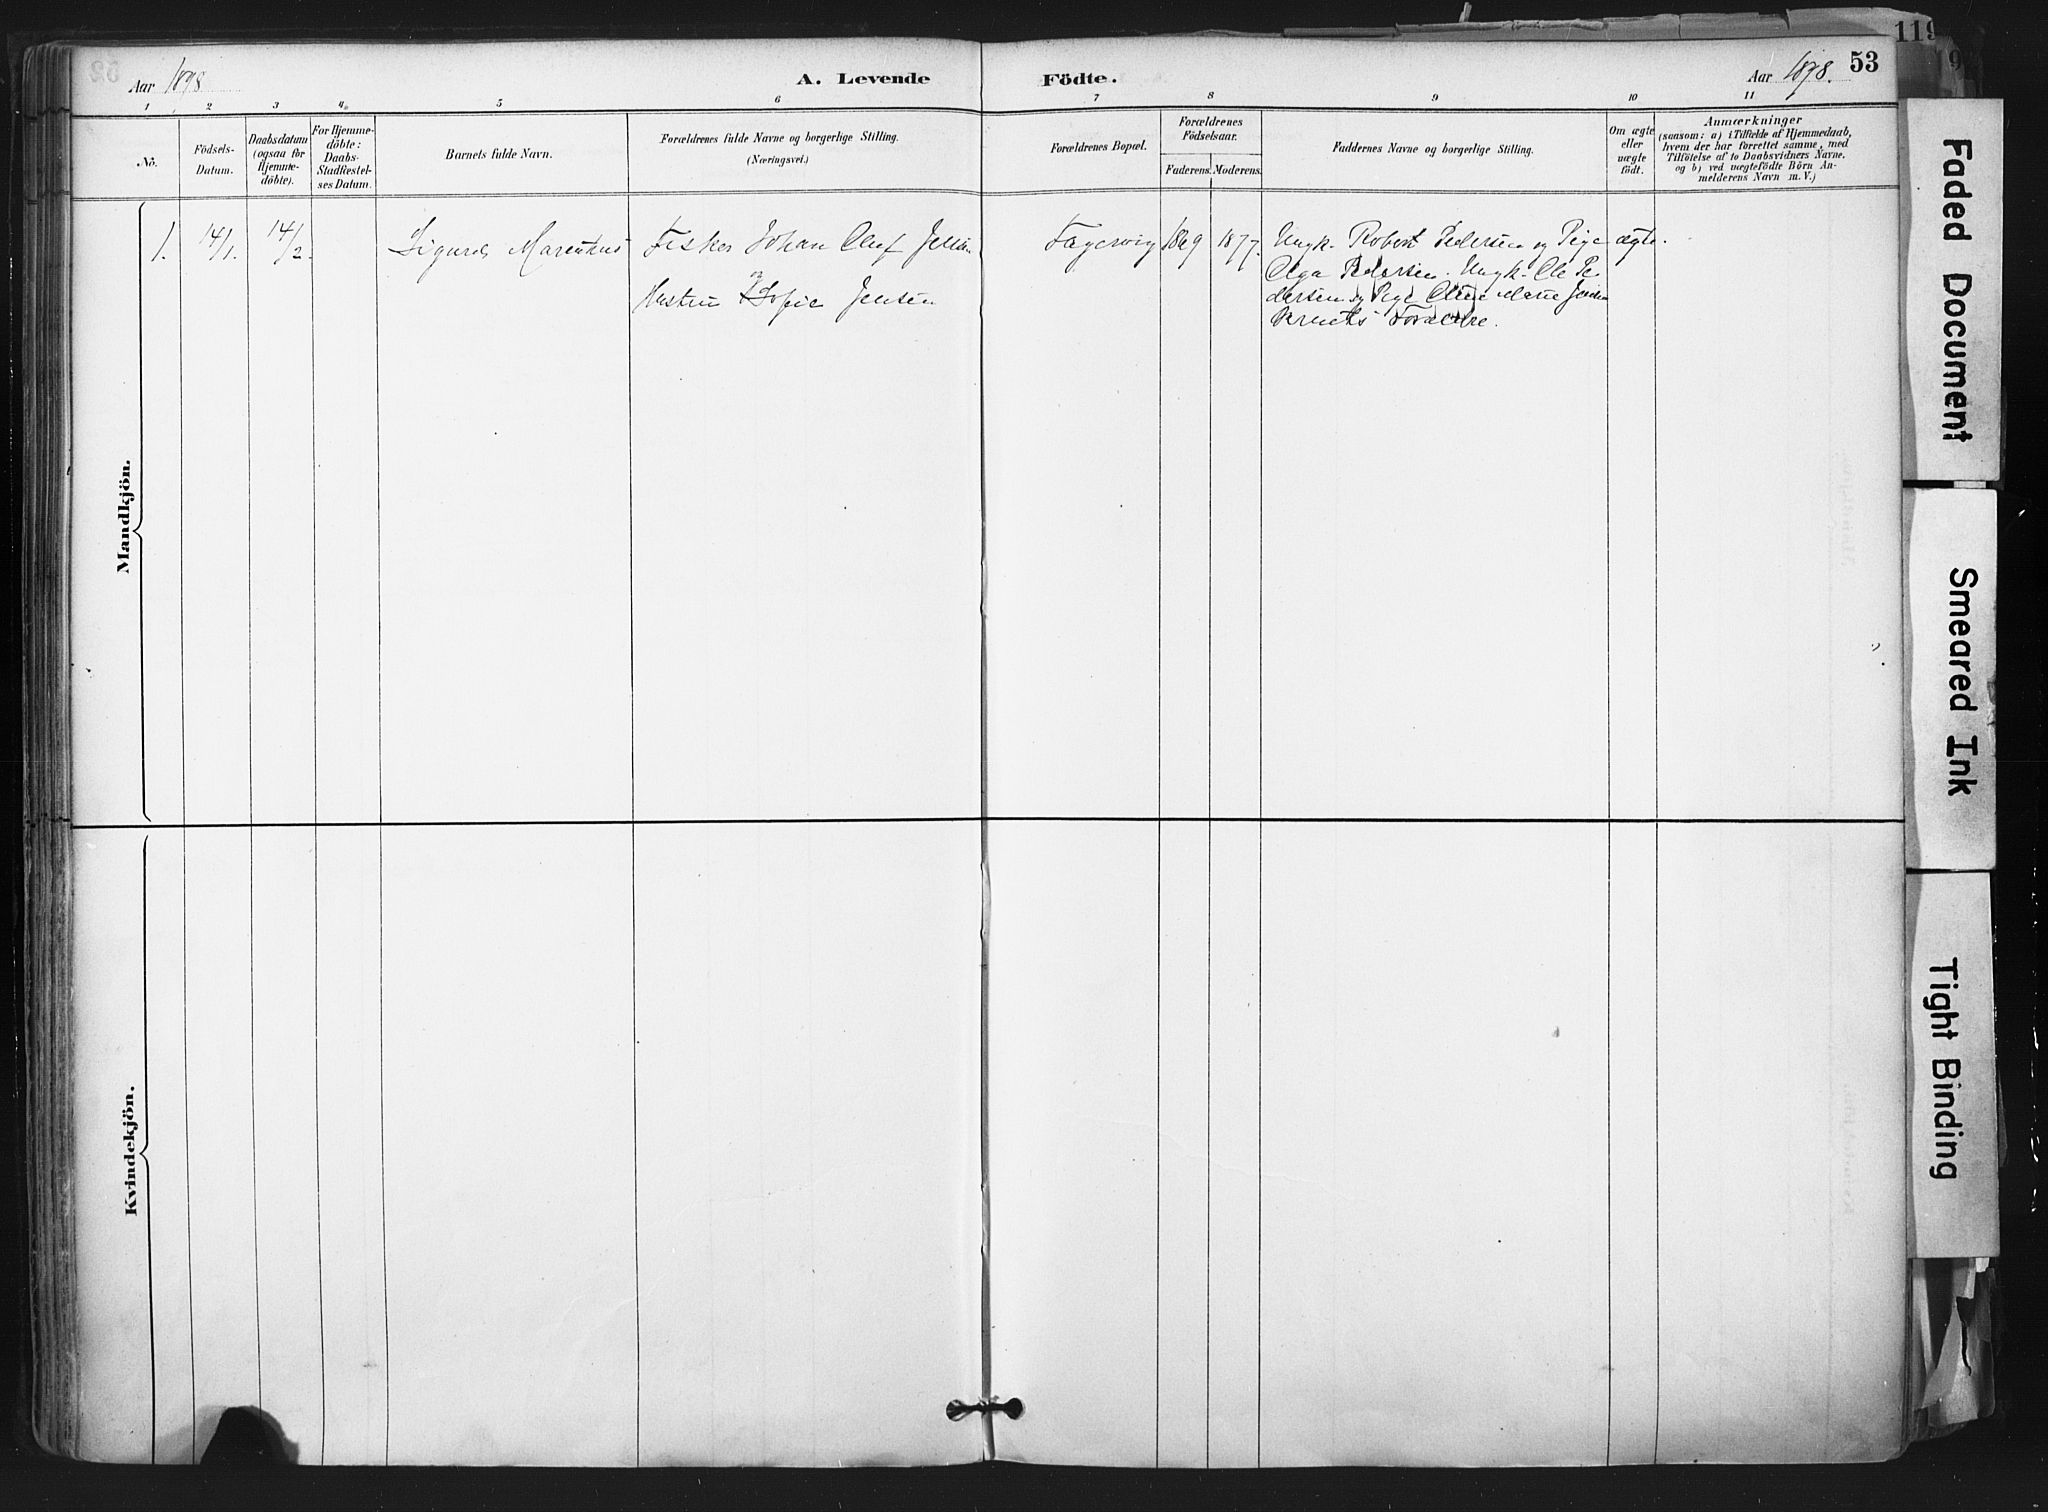 Aar 1898
A. Levende Födte.
Aar 1898.
53
119
1 2 3 4 5 6 7 8 9 10 11
No.
Födsels-
Datum.
Daabsdatum
(ogsaa for
Hjemme-
döbte).
For Hjemme-
döbte:
Daabs-
Stadfestel-
ses Datum.
Barnets fulde Navn.
Forældrenes fulde Navne og borgerlige Stilling.
(Næringsvei.)
Forældrenes Bopæl.
Forældrenes
Födselsaar.
Faderens. Moderens.
Faddernes Navne og borgerlige Stilling.
Om ægte
eller
uægte
födt.
Anmærkninger
(saasom: a) i Tilfælde af Hjemmedaab,
hvem der har forrettet samme, med
Tilföielse af to Daabsvidners Navne,
og b) ved uægtefödte Börn An-
melderens Navn m. V.)
Mandkjön.
1. 14/1. 14/2. Sigurd Marentius Fisker Johan Oluf Jensen Fagervig 1869 1877. Ungk. Robert Pedersen og Pige ægte.
Hustru Sofie Jensen
Olga Pedersen. Ungk. Ole Pe
dersen og Pige Oline Marie Jensen
Barnets Forældre.
Kvindekjön.
Faded Document
Smeared Ink
Tight Binding